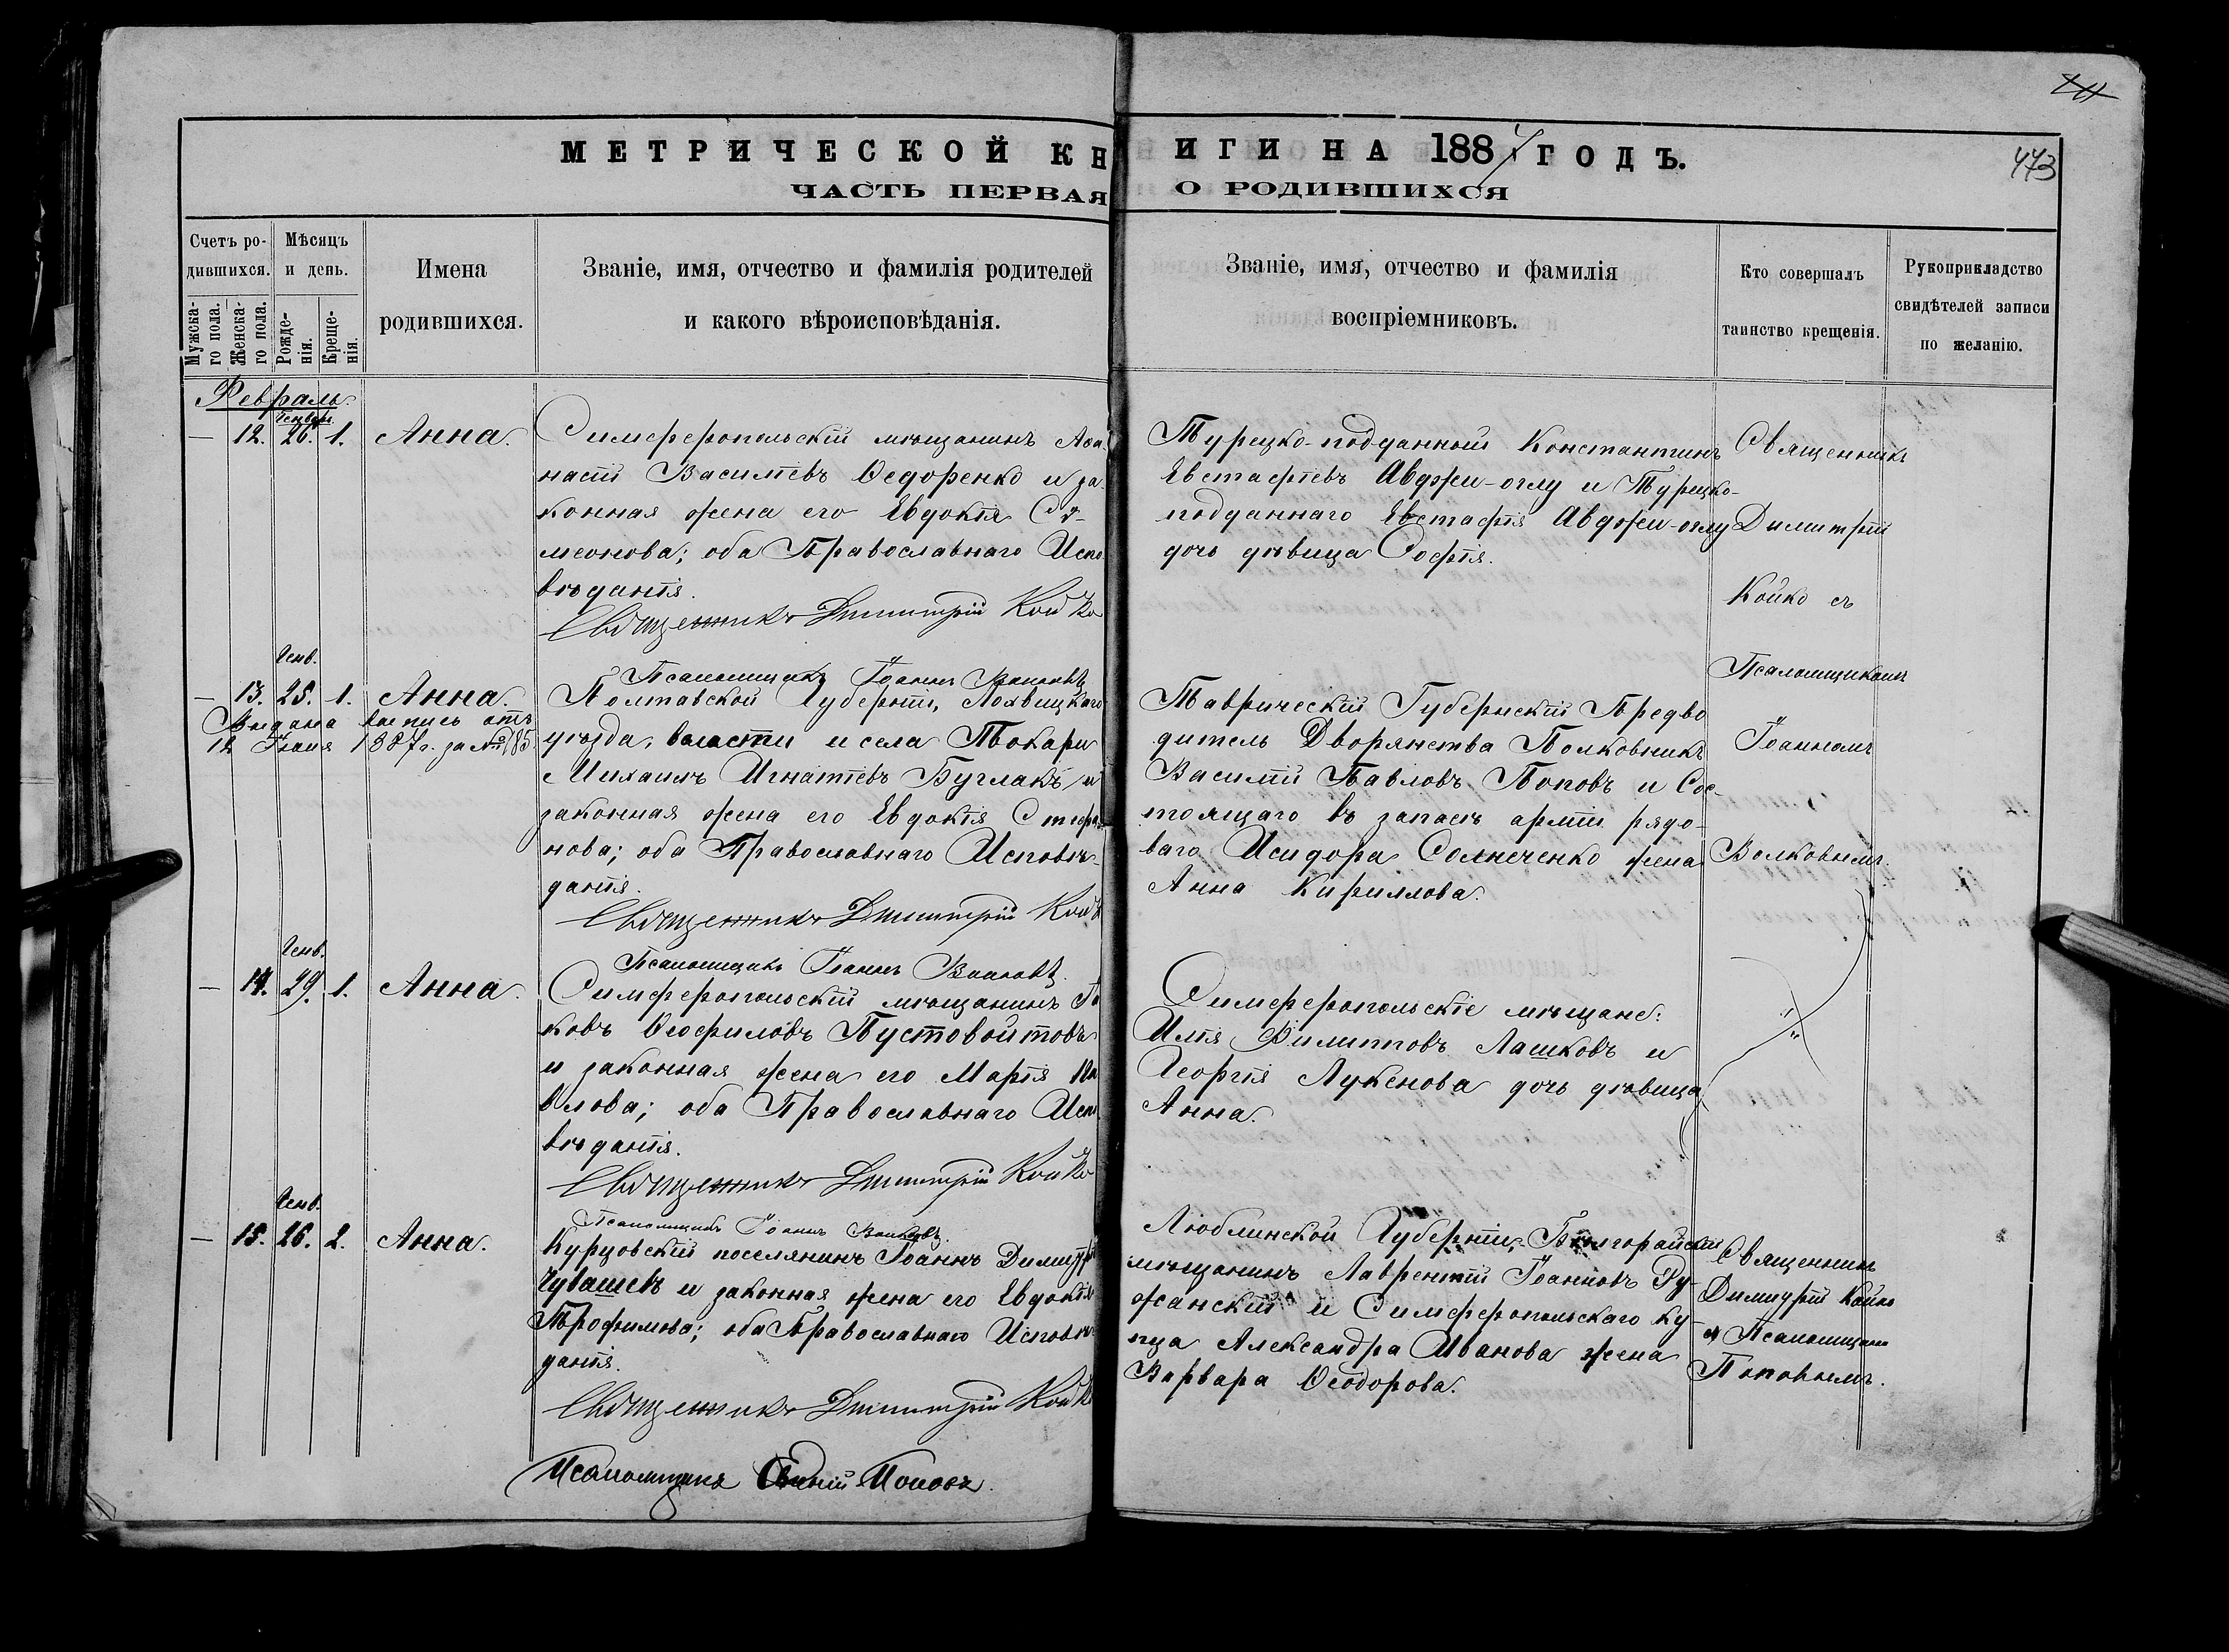 МЕТРИЧЕСКОЙ КНИГИ НА 1887 ГОДЪ.
ЧАСТЬ ПЕРВАЯ О РОДИВШИХСЯ
473
Счетъ родившихся.
Мужска-
го пола.
Женска-
го пола.
Мѣсяцъ
и день.
Рожде-
нія.
Креще-
нія.
Имена
родившихся.
Званіе, имя, отчество и фамилія родителей
и какого вѣроисповѣданія.
Званіе, имя, отчество и фамилія
воспріемниковъ.
Кто совершалъ
таинство крещенія.
Рукоприкладство
свидѣтелей записи
по желанію.
Февраль.
Генвар.
— 12. 26. 1. Анна.
Симферопольскій мѣщанинъ Афа-
насій Василіевъ Ѳедоренко и за-
конная жена его Евдокія Си-
меонова; оба Православнаго Испо
вѣданія.
Священникъ Димитрій Койко
Псаломщикъ Іоаннъ Волковъ
Турецко-подданный Константинъ
Евстафіевъ Авджи-оглу и Турецко-
подданнаго Евстафія Авджи-оглу
дочь дѣвица Софія.
Священникъ
Димитрій
Койко съ
Псаломщикомъ
Іоанномъ
Волковымъ.
Генв.
— 13. 25. 1. Анна.
Выдана выпись отъ
12 Іюня 1887 г. за № 185
Полтавской Губерніи, Лохвицкаго
уѣзда, волости и села Токари
Михаилъ Игнатіевъ Буглакъ и
законная жена его Евдокія Стефа-
нова; оба Православнаго Исповѣ-
данія.
Священникъ Димитрій Койко
Псаломщикъ Іоаннъ Волковъ.
Таврическій Губернскій Предво
дитель Дворянства Полковникъ
Василій Павловъ Поповъ и Сос-
тоящаго въ запасѣ арміи рядо-
ваго Исидора Солнеченко жена
Анна Кириллова.
Генв.
— 14. 29. 1. Анна.
Симферопольскій мѣщанинъ Іа
ковъ Ѳеофиловъ Пустовойтовъ
и законная жена его Марія Па
влова; оба Православнаго Испо
вѣданія.
Священникъ Димитрій Койко
Псаломщикъ Іоаннъ Волковъ.
Симферопольскіе мѣщане:
Илія Филипповъ Лашковъ и
Георгія Лукенова дочь дѣвица
Анна.
Генв.
— 15. 26. 2. Анна.
Курцовскій поселянинъ Іоаннъ Димитр
Чувашевъ и законная жена его Евдокія
Трофимова; оба Православнаго Исповѣ-
данія.
Священникъ Димитрій Койко
Псаломщикъ Поповъ.
Люблинской Губерніи, Билгорайскій
мѣщанинъ Лаврентій Іоанновъ Ру-
жанскій и Симферопольскаго ку-
пца Александра Иванова жена
Варвара Ѳеодорова.
Священникъ
Димитрій Койко
съ Псаломщикомъ
Поповымъ.